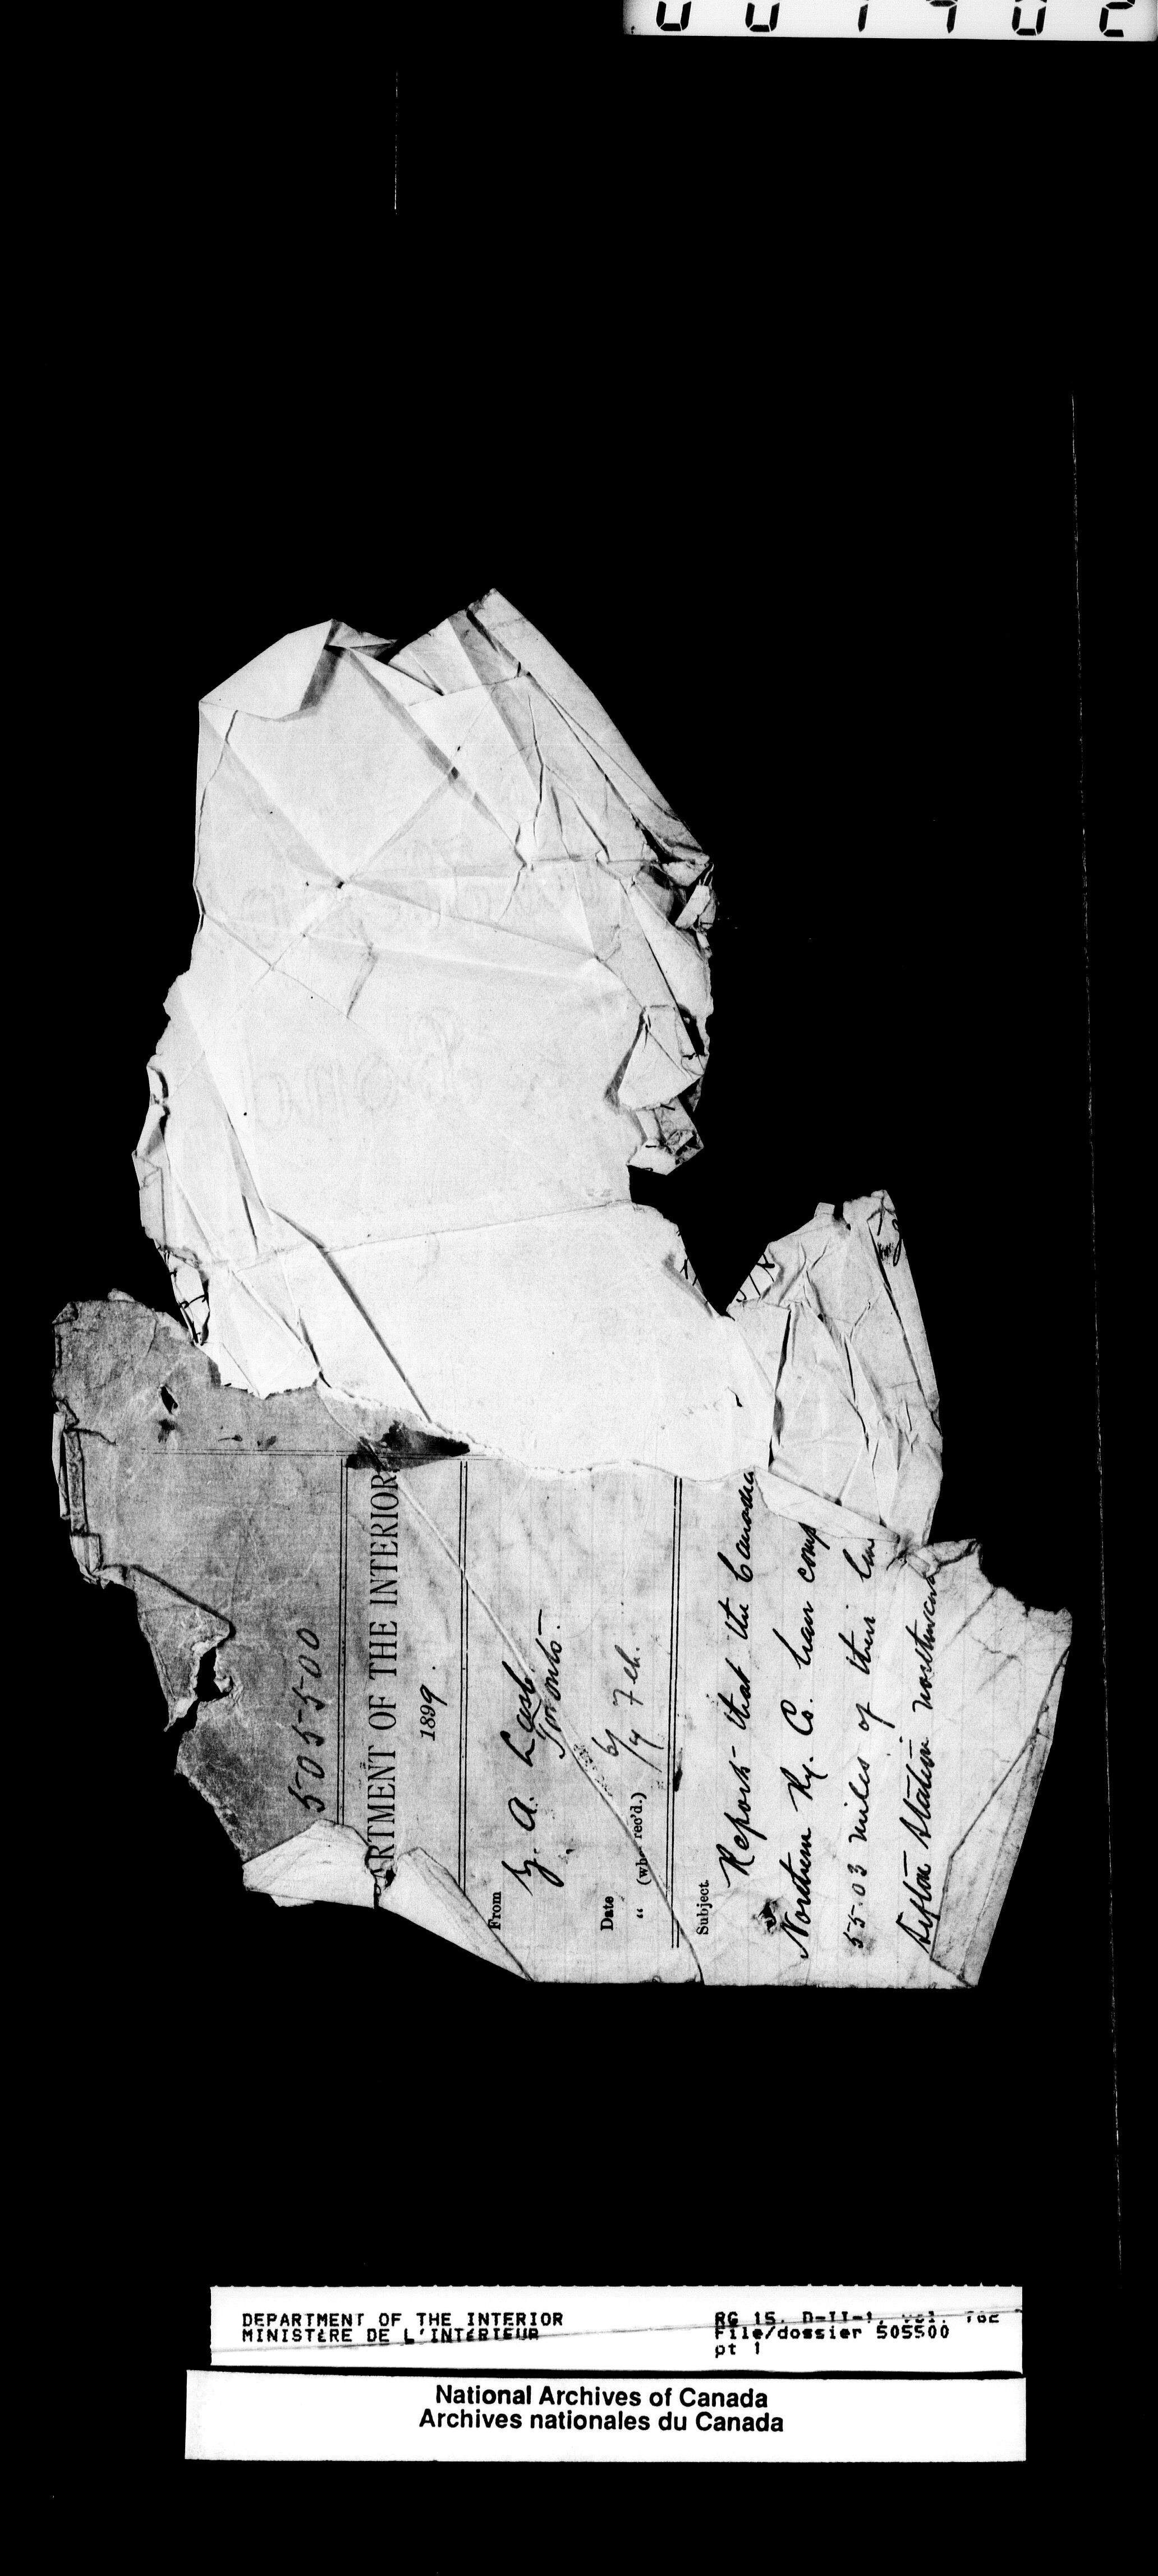 505500
ARTMENT OF THE INTERIOR
1899.
From
Z. A. Lash
Toronto.
Date 6/4
" (whe rec'd.) 7th.
Subject
Report that the Canadia
Northern Ry. Co. have comp
55.03 miles of their line
Sifton Station northward
DEPARTMENT OF THE INTERIOR
MINISTÈRE DE L'INTÉRIEUR
RG 15, D-II-1, vol. 762
File/dossier 505500
pt 1
National Archives of Canada
Archives nationales du Canada